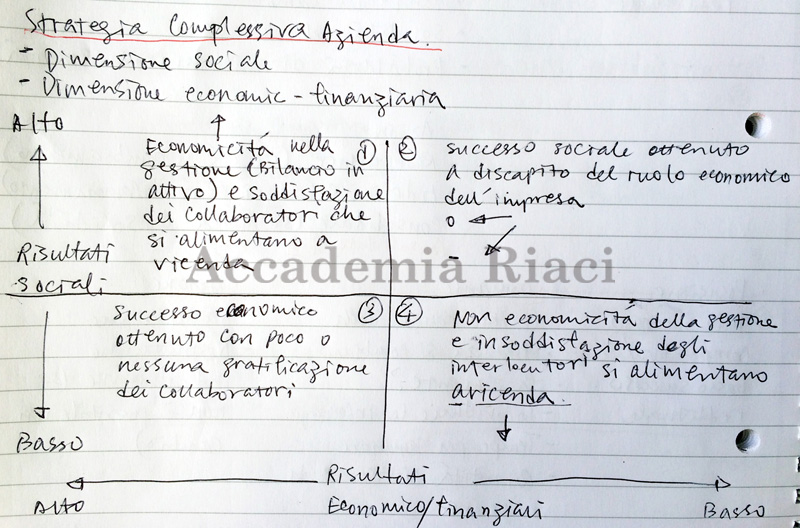 Strategia Complessiva Azienda.
- Dimensione sociale
- Dimensione economic-finanziaria
Alto
Economicitá nella ①
gestione (Bilancio in
attivo) e soddisfazione
dei collaboratori che
si alimentano a
vicenda
② successo sociale ottenuto
a discapito del ruolo economico
dell'impresa
0
-
Risultati
sociali
Accademia Riaci
Successo economico ③
ottenuto con poco o
nessuna gratificazione
dei collaboratori
④ Non economicitá della gestione
e insoddisfazione degli
interlocutori si alimentano
avicenda.
Basso
Risultati
Alto Economico/finanziari Basso